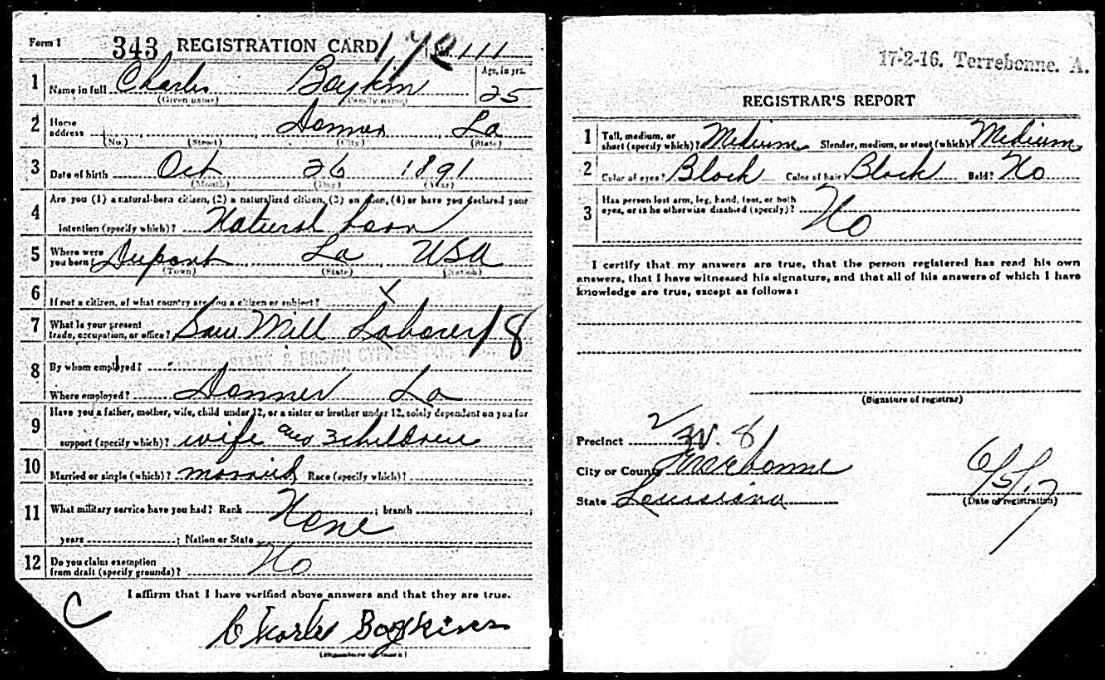 Form 1 343 REGISTRATION CARD No. 111
1 Name in full Charles Boykin Age, in yrs. 25
(Given name) (Family name)
2 Home address Donner La
(No.) (Street) (City) (State)
3 Date of birth Oct 26 1891
(Month) (Day) (Year)
4 Are you (1) a natural-born citizen, (2) a naturalized citizen, (3) an alien, (4) or have you declared your
intention (specify which)? Natural born
5 Where were you born? Dupont La USA
(Town) (State) (Nation)
6 If not a citizen, of what country are you a citizen or subject? X
7 What is your present trade, occupation, or office? Saw Mill Laborer 18
8 By whom employed? BROWN CYPRESS
Where employed? Donner La
9 Have you a father, mother, wife, child under 12, or a sister or brother under 12, solely dependent on you for
support (specify which)? wife and 3 children
10 Married or single (which)? married Race (specify which)?
11 What military service have you had? Rank None ; branch ;
years ; Nation or State
12 Do you claim exemption from draft (specify grounds)? No
I affirm that I have verified above answers and that they are true.
C
Charles Boykins
(Signature or mark)
17-2-16. Terrebonne. A.
REGISTRAR'S REPORT
1 Tall, medium, or short (specify which)? Medium Slender, medium, or stout (which)? Medium
2 Color of eyes? Black Color of hair? Black Bald? No
3 Has person lost arm, leg, hand, foot, or both
eyes, or is he otherwise disabled (specify)? No
I certify that my answers are true, that the person registered has read his own
answers, that I have witnessed his signature, and that all of his answers of which I have
knowledge are true, except as follows:
(Signature of registrar)
Precinct 2 W. 8
City or County Terrebonne
State Louisiana
6/5/17
(Date of registration)